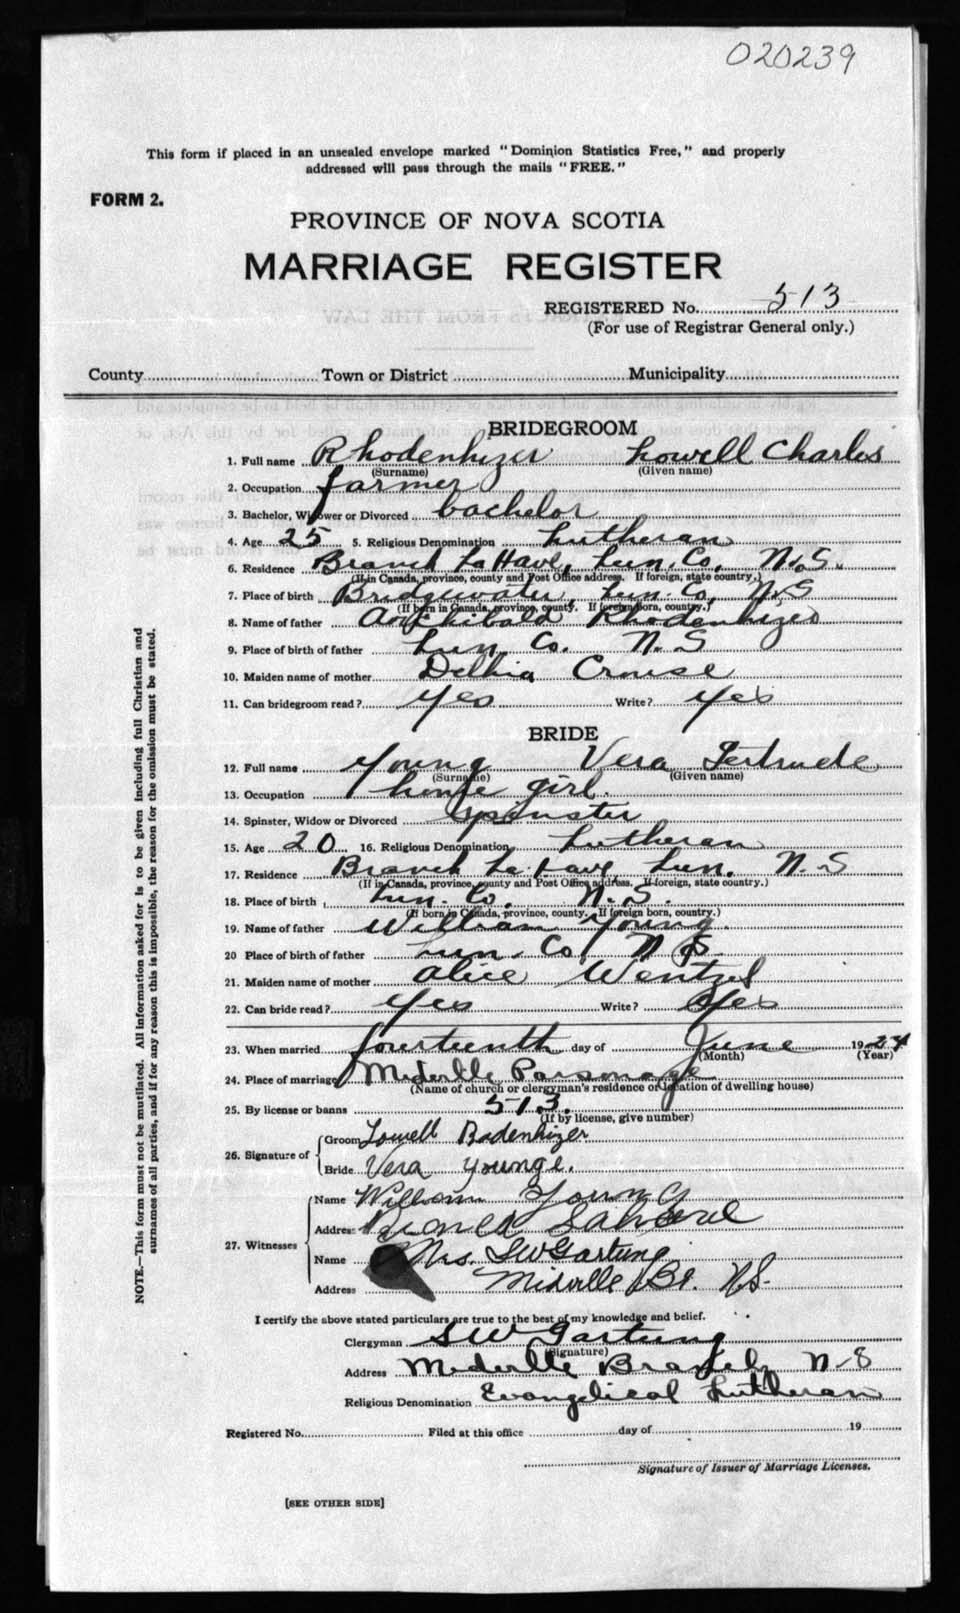 020239
This form if placed in an unsealed envelope marked "Dominion Statistics Free," and properly
addressed will pass through the mails "FREE."
FORM 2.
PROVINCE OF NOVA SCOTIA
MARRIAGE REGISTER
REGISTERED No. 513
(For use of Registrar General only.)
County Town or District Municipality
BRIDEGROOM
1. Full name Rhodenhizer Lowell Charles
(Surname) (Given name)
2. Occupation farmer
3. Bachelor, Widower or Divorced bachelor
4. Age 25 5. Religious Denomination Lutheran
6. Residence Branch LaHave, Lun. Co. N.S.
(If in Canada, province, county and Post Office address. If foreign, state country.)
7. Place of birth Bridgewater, Lun. Co, N.S
(If born in Canada, province, county. If foreign born, country.)
8. Name of father Archibald Rhodenhizer
9. Place of birth of father Lun. Co. N.S
10. Maiden name of mother Delhia Crouse
11. Can bridegroom read? Yes Write? Yes
BRIDE
12. Full name Young Vera Gertrude
(Surname) (Given name)
13. Occupation house girl.
14. Spinster, Widow or Divorced Spinster
15. Age 20 16. Religious Denomination Lutheran
17. Residence Branch La Have, Lun. N.S
(If in Canada, province, county and Post Office address. If foreign, state country.)
18. Place of birth Lun. Co. N.S.
(If born in Canada, province, county. If foreign born, country.)
19. Name of father William Young.
20 Place of birth of father Lun. Co, N S.
21. Maiden name of mother Alice Wentzel
22. Can bride read? Yes Write? Yes
23. When married fourteenth day of June 1924
(Month) (Year)
24. Place of marriage Midville Parsonage
(Name of church or clergyman's residence or location of dwelling house)
25. By license or banns 513.
(If by license, give number)
26. Signature of Groom Lowell Rodenhizer
Bride Vera Younge.
27. Witnesses Name William Young
Address
Name Mrs. SW Gartung
Address Midville Br. N.S.
I certify the above stated particulars are true to the best of my knowledge and belief.
Clergyman S W Gartung
(Signature)
Address Midville Branch, N-S
Religious Denomination Evangelical Lutheran
Registered No. Filed at this office day of 19
Signature of Issuer of Marriage Licenses.
[SEE OTHER SIDE]
NOTE.—This form must not be mutilated. All information asked for is to be given including full Christian and
surnames of all parties, and if for any reason this is impossible, the reason for the omission must be stated.